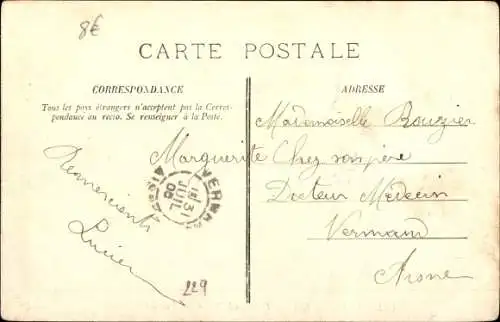 8€
CARTE POSTALE
CORRESPONDANCE
Tous les pays étrangers n'acceptent pas la Corres-
pondance au recto. Se renseigner à la Poste.
Remerciements
Lucien
ADRESSE
Mademoiselle Rouzier
Marguerite Chez son père
Docteur Médecin
Vermand
Aisne
VERMAND
31
JUIL
06
AISNE
229